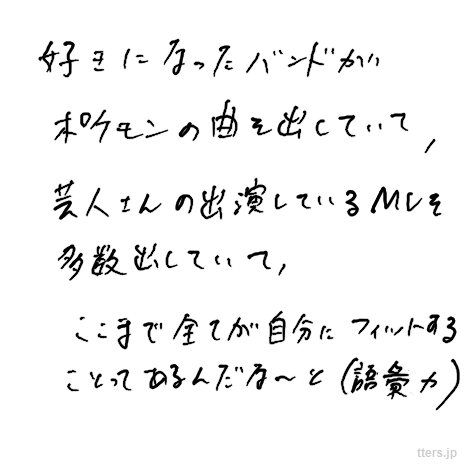 好きになったバンドが
ポケモンの曲を出していて,
芸人さんの出演しているMVを
多数出していて,
ここまで全てが自分にフィットする
ことってあるんだな〜と(語彙力)
tters.jp